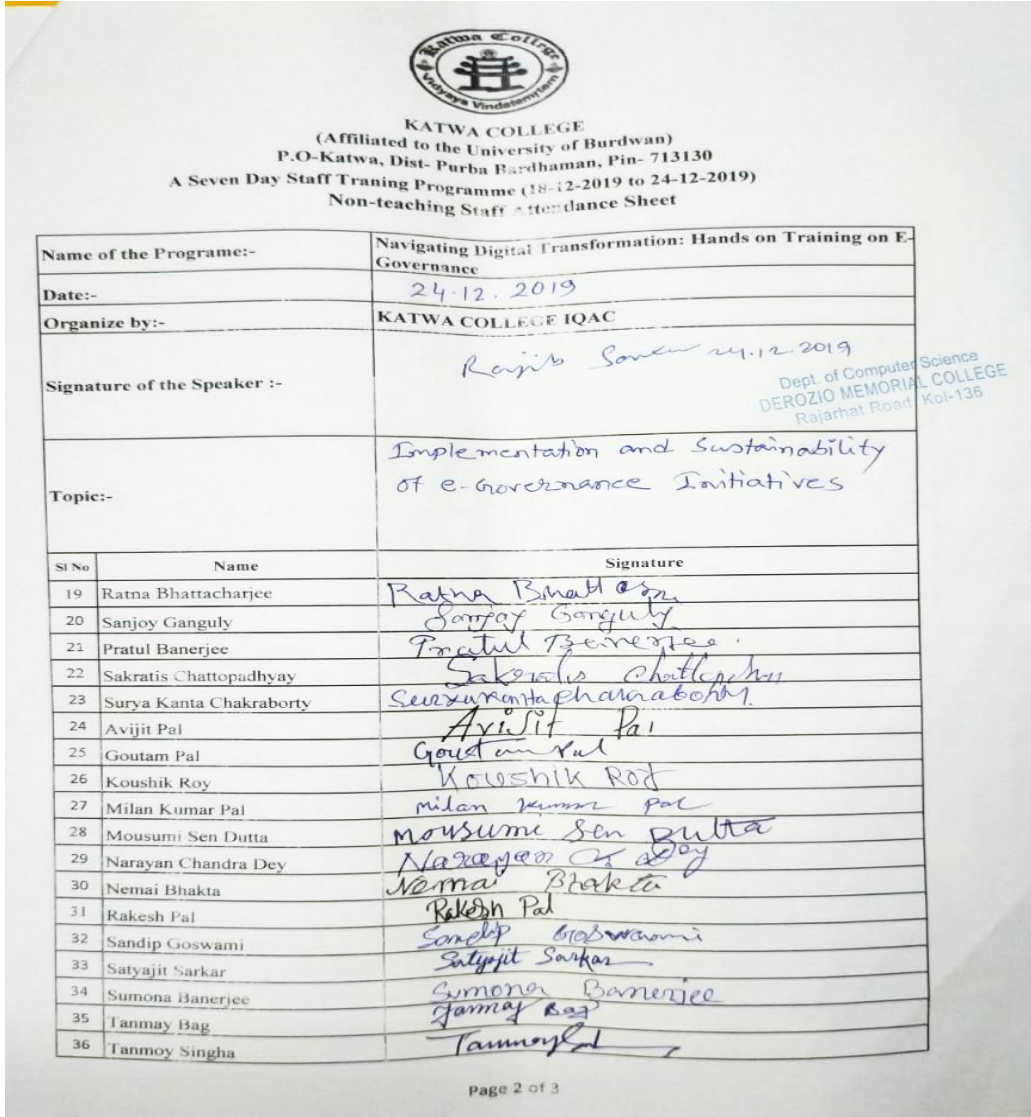 Katwa College
Vidyaya Vindatemrtam
KATWA COLLEGE
(Affiliated to the University of Burdwan)
P.O-Katwa, Dist- Purba Bardhaman, Pin- 713130
A Seven Day Staff Traning Programme (18-12-2019 to 24-12-2019)
Non-teaching Staff Attendance Sheet
Name of the Programe:- Navigating Digital Transformation: Hands on Training on E-
Governance
Date:- 24.12.2019
Organize by:- KATWA COLLEGE IQAC
Signature of the Speaker :- Rajib 24.12.2019
Dept. of Computer Science
DEROZIO MEMORIAL COLLEGE
Rajarhat Road, Kol-136
Topic:- Implementation and Sustainability
of e-Governance Initiatives
Sl No Name Signature
19 Ratna Bhattacharjee Ratna
20 Sanjoy Ganguly Sanjoy Ganguly
21 Pratul Banerjee Pratul Banerjee
22 Sakratis Chattopadhyay
23 Surya Kanta Chakraborty
24 Avijit Pal Avijit Pal
25 Goutam Pal Goutam Pal
26 Koushik Roy Koushik Roy
27 Milan Kumar Pal Milan Kumar Pal
28 Mousumi Sen Dutta Mousumi Sen Dutta
29 Narayan Chandra Dey Narayan Ch Dey
30 Nemai Bhakta Nemai Bhakta
31 Rakesh Pal Rakesh Pal
32 Sandip Goswami Sandip Goswami
33 Satyajit Sarkar Satyajit Sarkar
34 Sumona Banerjee Sumona Banerjee
35 Tanmay Bag Tanmay Bag
36 Tanmoy Singha Tanmoy
Page 2 of 3